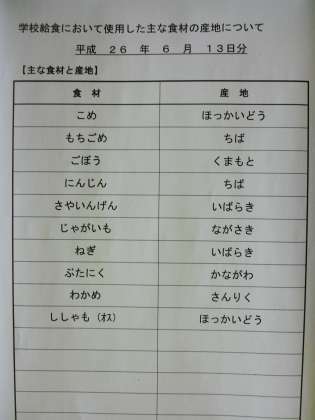 学校給食において使用した主な食材の産地について
平成 26 年 6 月 13日分
【主な食材と産地】
食 材 産 地
こめ ほっかいどう
もちごめ ちば
ごぼう くまもと
にんじん ちば
さやいんげん いばらき
じゃがいも ながさき
ねぎ いばらき
ぶたにく かながわ
わかめ さんりく
ししゃも（オス） ほっかいどう